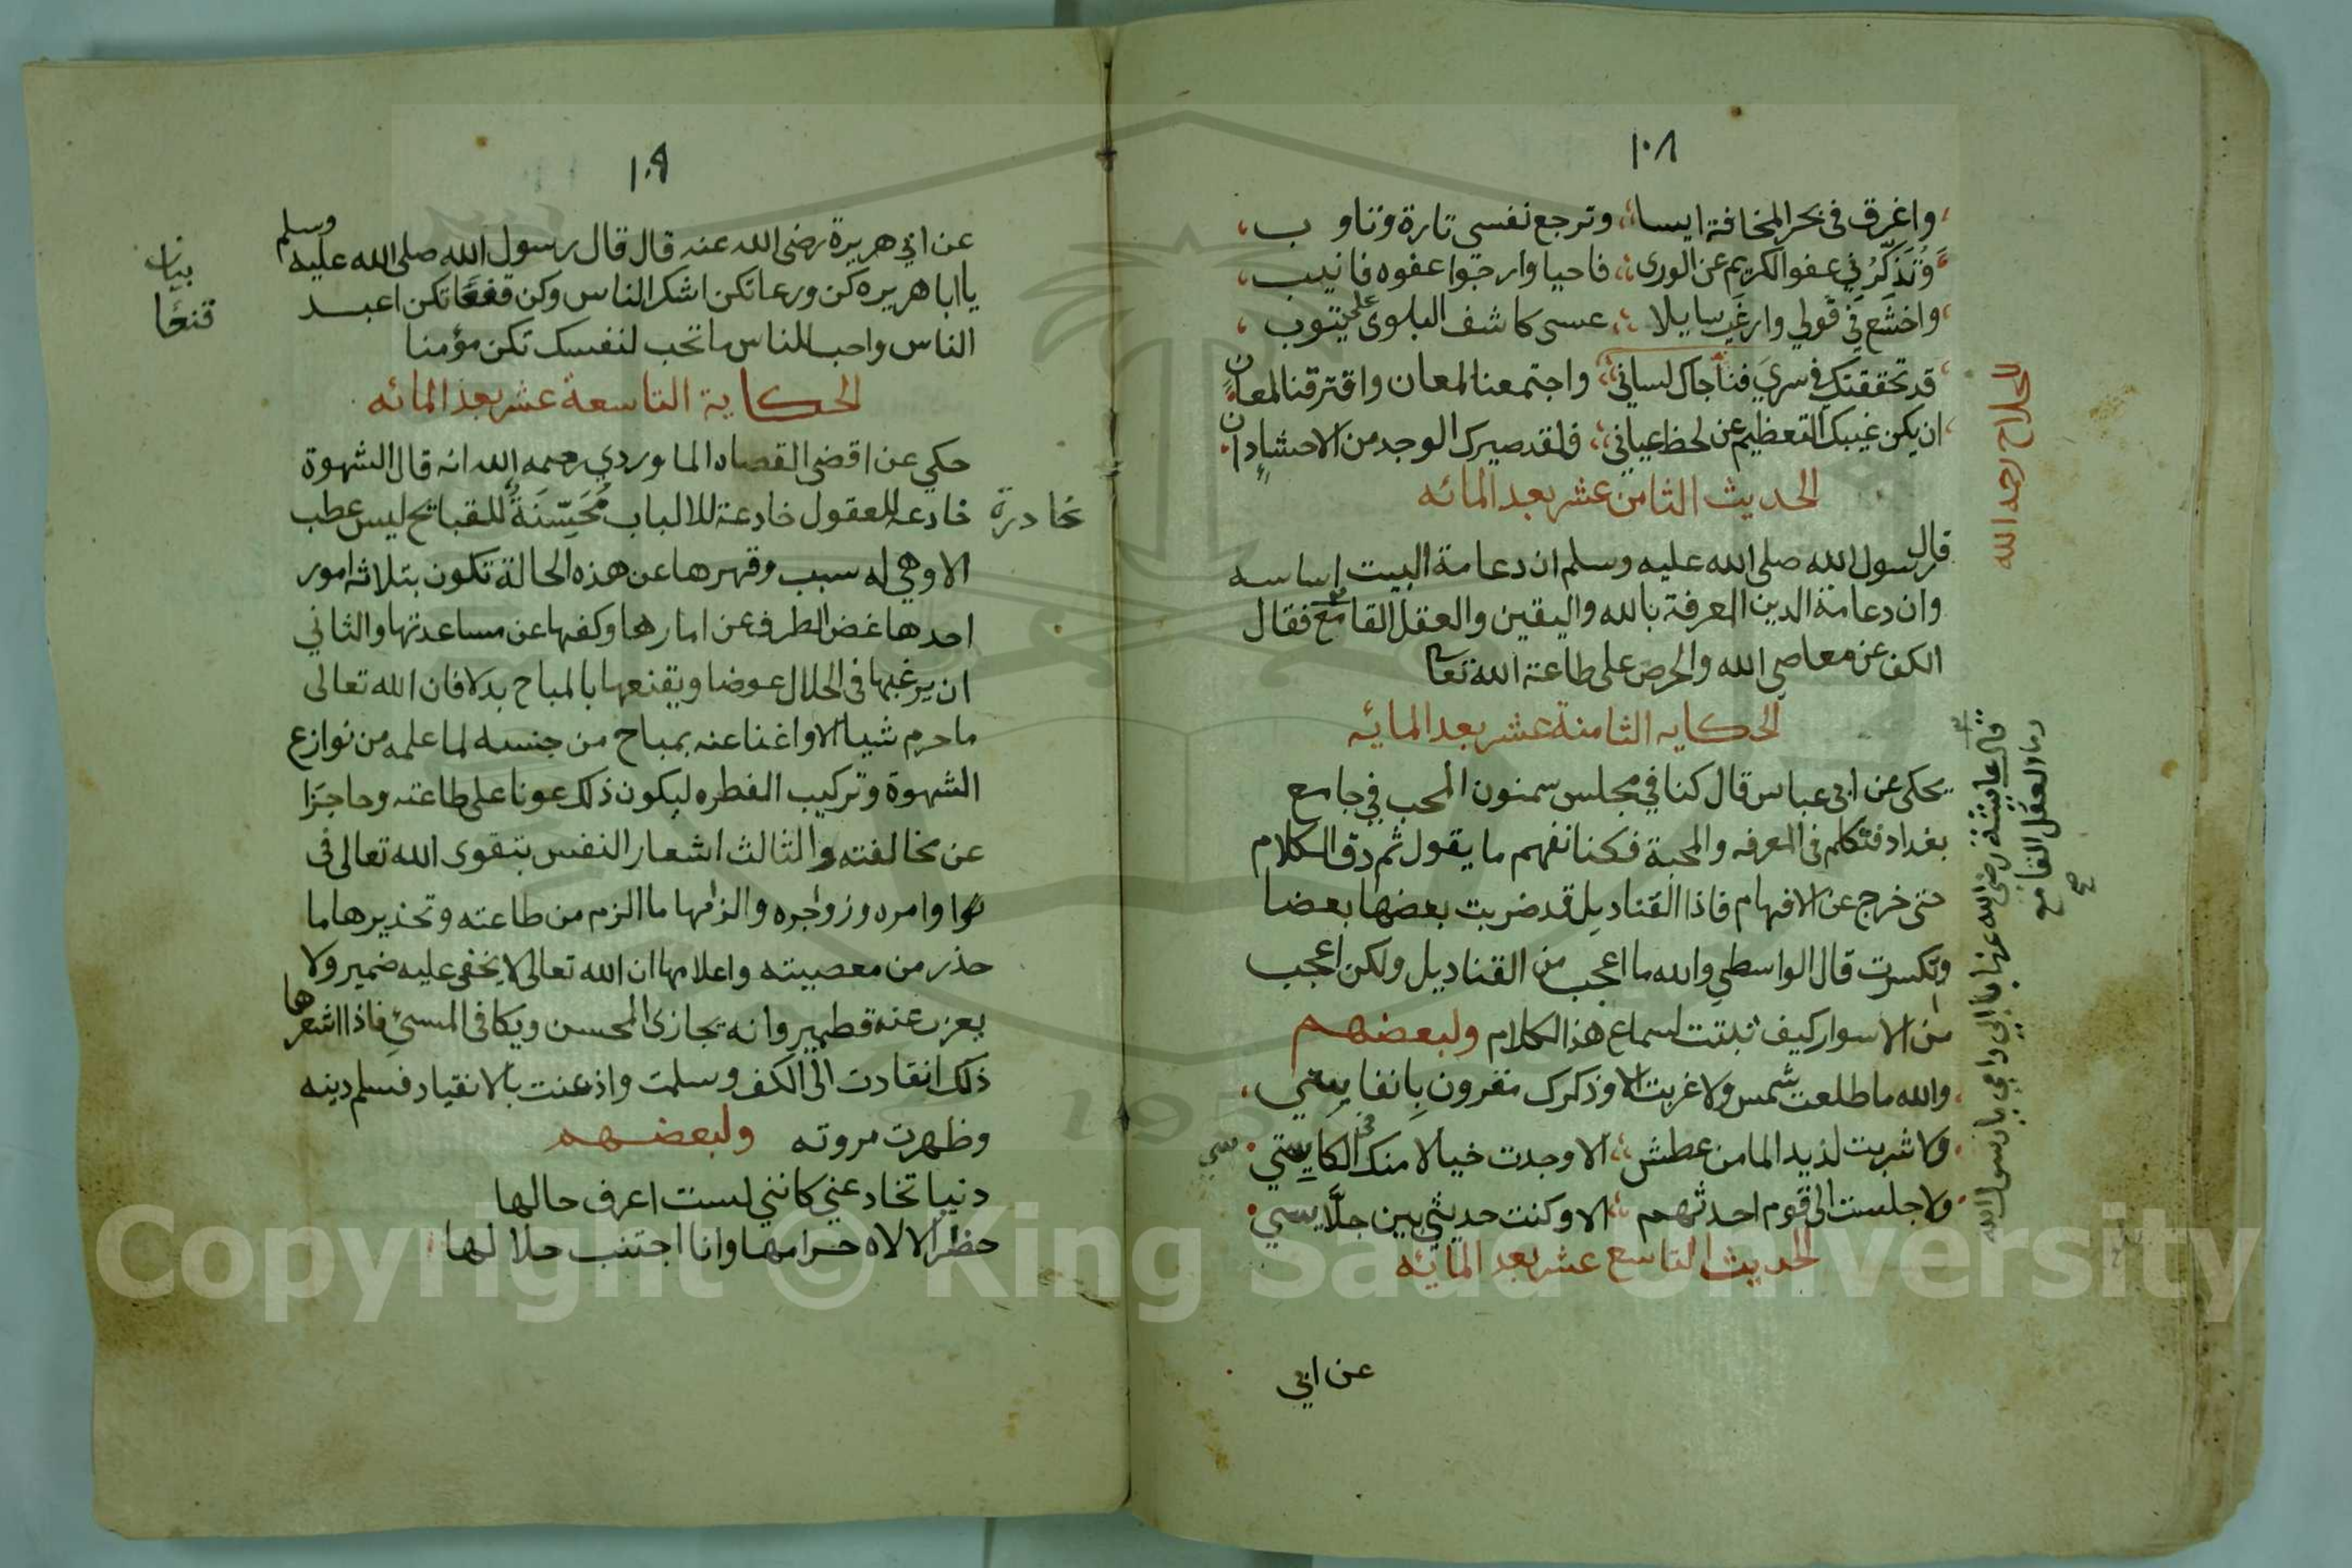 ١٠٨
واغرق في بحر المخافة ايسا وترجع نفسي تارة وتتاوب
وتذكرني عفو الكريم عن الورى فاحيا وارجوا عفوه فانيب
واخشع في قولي وارغب سايلا عسى كاشف البلوى علي يتوب
قد تحققتك في سري فناجاك لساني واجتمعنا لمعان وافترقنا لمعان
ان يكن غيبك التعظيم عن لحظ عياني فلقد صيرك الوجد من الاحشاء دان
للحلاج رحمه الله
الحديث الثامن عشر بعد المائه
قال رسول الله صلى الله عليه وسلم ان دعامة البيت اساسه
وان دعامة الدين المعرفة بالله واليقين والعقل القامع فقال
الكف عن معاصي الله والحرص على طاعة الله تعا
قالت عايشة رضي الله عنها بابي وامي يا رسول الله
وما العقل القامع
صح
الحكايه الثامنة عشر بعد المايه
يحكى عن ابي عباس قال كنا في مجلس سمنون المحب في جامع
بغداد فتكلم في المعرفه والمحبة فكنا نفهم ما يقول ثم دق الكلام
حتى خرج عن الافهام فاذا القناديل قد ضربت بعضها بعضا
وتكسرت قال الواسطي والله ما اعجب من القناديل ولكن اعجب
من الاسوار كيف ثبتت لسماع هذا الكلام ولبعضهم
والله ما طلعت شمس ولا غربت الا وذكرك مقرون بانفاسي
ولا شربت لذيد الما من عطش الا وجدت خيالا منك في الكاسي
ولا جلست الى قوم احدثهم الا وكنت حديثي بين جلاسي
الحديث التاسع عشر بعد المايه
عن ابي
١٠٩
عن ابي هريرة رضي الله عنه قال قال رسول الله صلى الله عليه وسلم
يا ابا هريره كن ورعا تكن اشكر الناس وكن قنعا تكن اعبد
الناس واحب للناس ما تحب لنفسك تكن مؤمنا
بيان
قنعا
الحكاية التاسعة عشر بعد المائه
حكي عن اقضى القضاه الماوردي رحمه الله انه قال الشهوة
خادعه للعقول خادعة للالباب محسنة للقبايح ليس عطب
الا وهي له سبب وقهرها عن هذه الحالة تكون بتلاثه امور
احدها غض الطرف عن امارها وكفها عن مساعدتها والثاني
ان يرغبها في الحلال عوضا ويقنعها بالمباح بدلا فان الله تعالى
ما حرم شيا الا واغنا عنه بمباح من جنسه لما علمه من نوازع
الشهوة وتركيب الفطره ليكون ذلك عونا على طاعته وحاجزا
عن مخالفته والثالث اشعار النفس بتقوى الله تعالى في
اوامره وزواجره والزامها ما الزم من طاعته وتحذيرها ما
حذر من معصيته واعلامها ان الله تعالى لا يخفى عليه ضمير ولا
يعزب عنه قطمير وانه يجازى المحسن ويكافى المسئ فاذا اشعرها
ذلك انقادت الى الكف وسلمت واذعنت بالانقياد فسلم دينه
وظهرت مروته ولبعضهم
دنيا تخادعني كانني لست اعرف حالها
حظر الالاه حرامها وانا اجتنب حلالها
Copyright © King Saud University